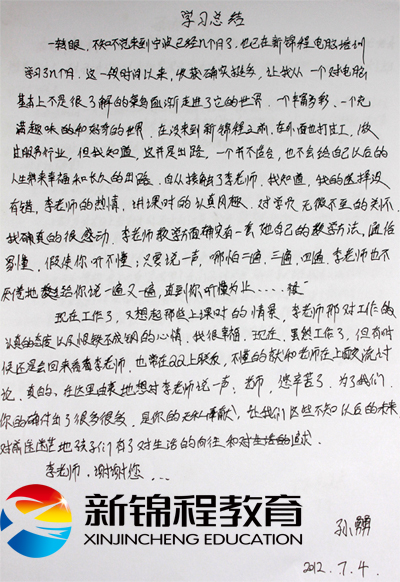 学习总结
一转眼，不知不觉来到宁波已经几个月了，也已在新锦程电脑培训
学习了几个月，这一段时间以来，收获确实挺多，让我从一个对电脑
基本上不是很了解的菜鸟逐渐走进了它的世界，一个丰富多彩，一个充
满趣味的和好奇的世界，在没来到新锦程之前，在外面也打过工，做
过服务行业，但我知道，这并是出路，一个并不适合，也不会给自己以后的
人生带来幸福和长久的出路，自从接触了李老师，我知道，我的选择没
有错，李老师的热情，讲课时的认真风趣，对学员无微不至的关怀
我确真的很感动，李老师教学方面确实有一套他自己的教学方法，通俗
易懂，假使你听不懂，只要说一声，哪怕二遍，三遍，四遍，李老师也不
厌倦地给你说一遍又一遍，直到你听懂为止……
现在工作了，又想起那些上课时的情景，李老师那对工作的
认真的态度以及恨铁不成钢的心情，我很幸福，现在，虽然工作了，但有时
候还是会回来看看李老师，也常在QQ上联友，不懂的就和老师在上面交流讨
论，真的，在这里由衷地想对李老师说一声，老师，您辛苦了，为了我们，
你的确付出了很多很多，是你的无私奉献，让我们这些不知以后的未来
对前途迷茫地孩子们有了对生活的向往和对生活的追求。
李老师，谢谢您…
孙
2012.7.4.
新锦程教育
XINJINCHENG EDUCATION